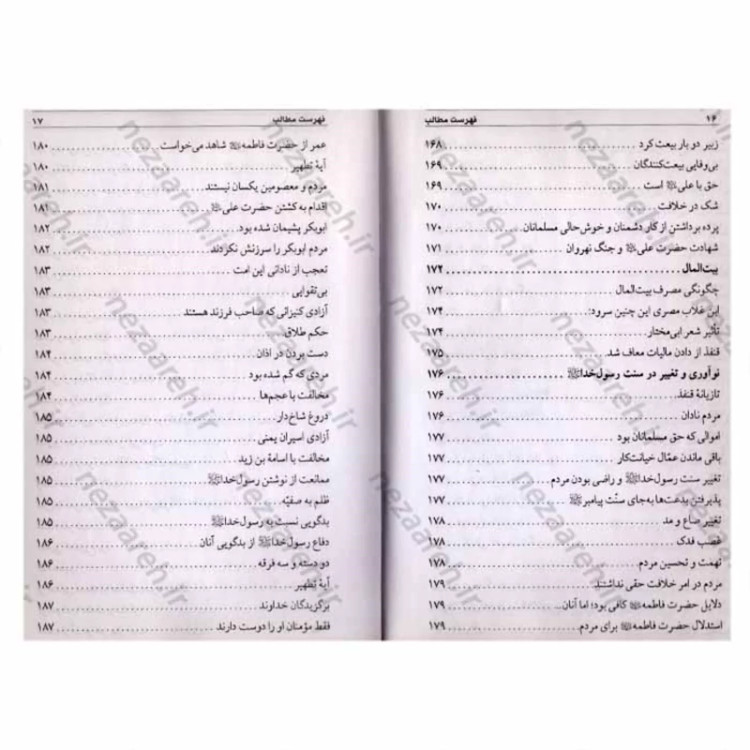 ۱۶ فهرست مطالب
زبیر دو بار بیعت کرد ۱۶۸
بی‌وفایی بیعت‌کنندگان ۱۶۹
حق با علی ﷺ است ۱۶۹
شک در خلافت ۱۷۰
پرده برداشتن از کار دشمنان و خوش‌حالی مسلمانان ۱۷۰
شهادت حضرت علی ﷺ و جنگ نهروان ۱۷۱
بیت‌المال ۱۷۲
چگونگی مصرف بیت‌المال ۱۷۲
ابن غلاب مصری این چنین سرود: ۱۷۴
تأثیر شعر ابی‌مختار ۱۷۴
قنفذ از دادن مالیات معاف شد. ۱۷۵
نوآوری و تغییر در سنت رسول‌خدا ﷺ ۱۷۶
تازیانهٔ قنفذ
مردم نادان ۱۷۶
اموالی که حق مسلمانان بود ۱۷۷
باقی ماندن عمّال خیانت‌کار ۱۷۷
تغییر سنت رسول‌خدا ﷺ و راضی بودن مردم ۱۷۷
پذیرفتن بدعت‌ها به‌جای سنّت پیامبر ﷺ ۱۷۷
تغییر صاع و مد ۱۷۸
غصب فدک ۱۷۸
تهمت و تحسین مردم ۱۷۸
مردم در امر خلافت حقی نداشتند. ۱۷۹
دلایل حضرت فاطمه ﷺ کافی بود؛ اما آنان ۱۷۹
استدلال حضرت فاطمه ﷺ برای مردم ۱۷۹
فهرست مطالب ۱۷
عمر از حضرت فاطمه ﷺ شاهد می‌خواست ۱۸۰
آیهٔ تطهیر ۱۸۰
مردم و معصومین یکسان نیستند. ۱۸۱
اقدام به کشتن حضرت علی ﷺ ۱۸۱
ابوبکر پشیمان شده بود ۱۸۲
مردم ابوبکر را سرزنش نکردند ۱۸۲
تعجب از نادانی این امت ۱۸۳
بی‌تقوایی ۱۸۳
آزادی کنیزانی که صاحب فرزند هستند ۱۸۳
حکم طلاق ۱۸۳
دست بردن در اذان ۱۸۴
مردی که گم شده بود ۱۸۴
مخالفت با عجم‌ها ۱۸۴
دروغ شاخ‌دار ۱۸۵
آزادی اسیران یمنی ۱۸۵
مخالفت با اسامة بن زید ۱۸۵
ممانعت از نوشتن رسول‌خدا ﷺ ۱۸۵
ظلم به صفیّه ۱۸۵
بدگویی نسبت به رسول‌خدا ﷺ ۱۸۵
دفاع رسول‌خدا ﷺ از بدگویی آنان ۱۸۶
دو دسته و سه فرقه ۱۸۶
آیهٔ تطهیر ۱۸۶
برگزیدگان خداوند ۱۸۷
فقط مؤمنان او را دوست دارند ۱۸۷
nezaareh.ir